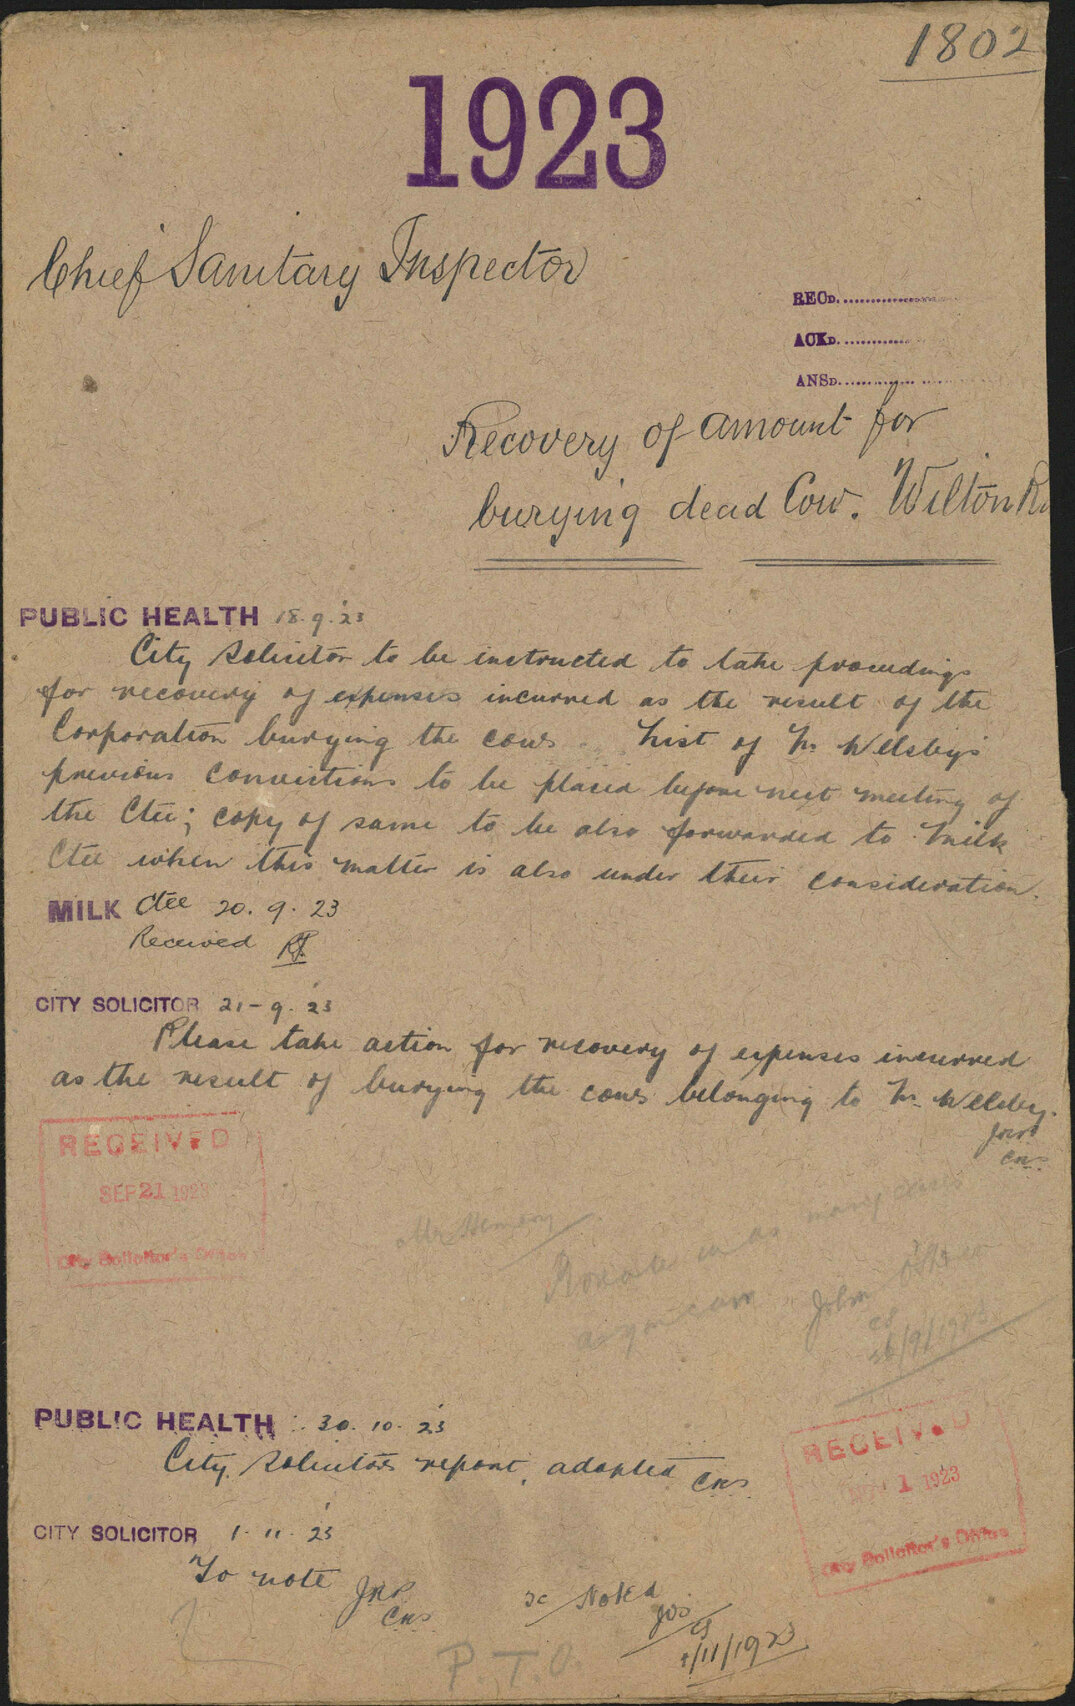 1802
1923
Chief Sanitary Inspector
RECD.
ACKD.
ANSD.
Recovery of amount for
burying dead Cow. Wilton Rd
PUBLIC HEALTH 18.9.23
City Solicitor to be instructed to take proceedings
for recovery of expenses incurred as the result of the
Corporation burying the cows. List of Mr Welsby's
previous convictions to be placed before next meeting of
the Ctee; copy of same to be also forwarded to Milk
Ctee when this matter is also under their consideration.
MILK Ctee 20.9.23
Received
CITY SOLICITOR 21-9.23
Please take action for recovery of expenses incurred
as the result of burying the cows belonging to Mr. Welsby.
RECEIVED
SEP 21 1923
City Solicitor's Office
as many cases
as you can John
CS
26/9/1923
PUBLIC HEALTH 30.10.23
City Solicitors report adopted
RECEIVED
1 1923
City Solicitor's Office
CITY SOLICITOR 1.11.23
To note
Noted
CS
4/11/1923
P.T.O.